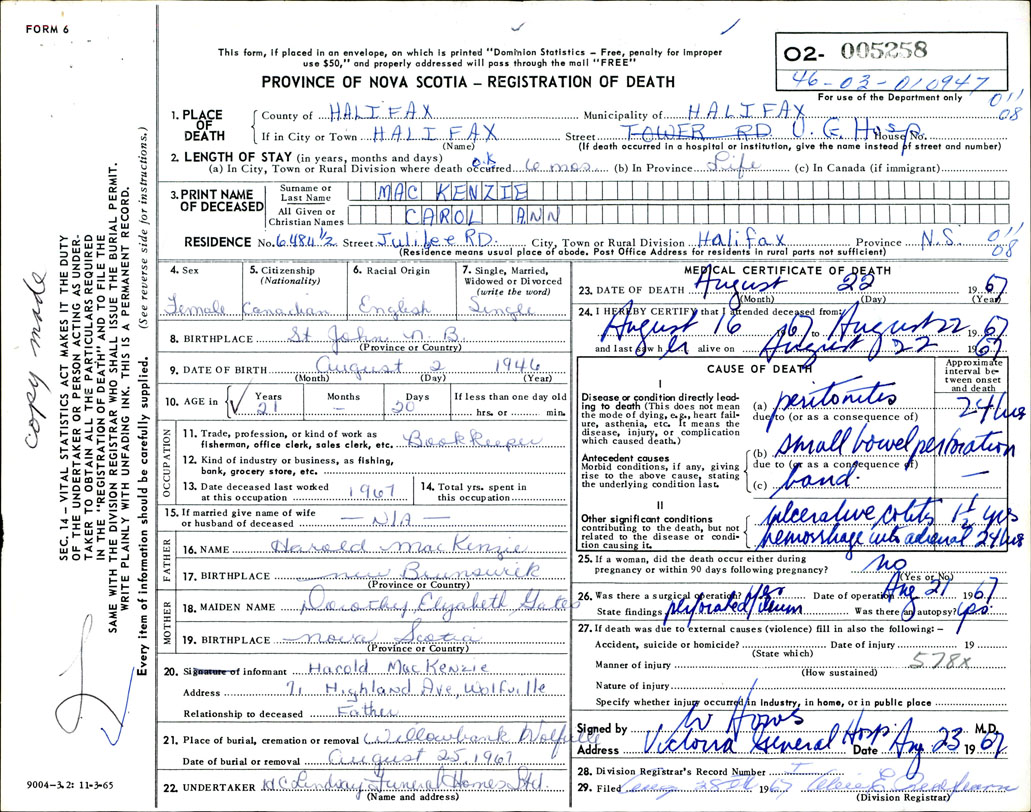 FORM 6
This form, if placed in an envelope, on which is printed "Dominion Statistics – Free, penalty for improper
use $50," and properly addressed will pass through the mail "FREE"
PROVINCE OF NOVA SCOTIA – REGISTRATION OF DEATH
O2- 005258
46-03-010947
For use of the Department only
011
08
1. PLACE OF DEATH
County of HALIFAX Municipality of HALIFAX
If in City or Town HALIFAX Street TOWER RD V. G. Hosp House No.
(Name) (If death occurred in a hospital or institution, give the name instead of street and number)
2. LENGTH OF STAY (in years, months and days) O.K
(a) In City, Town or Rural Division where death occurred 6 mos. (b) In Province Life (c) In Canada (if immigrant)
3. PRINT NAME OF DECEASED
Surname or Last Name MAC KENZIE
All Given or Christian Names CAROL ANN
RESIDENCE No. 6484 1/2 Street Jubilee RD. City, Town or Rural Division Halifax Province N.S.
011
08
(Residence means usual place of abode. Post Office Address for residents in rural parts not sufficient)
4. Sex
Female
5. Citizenship (Nationality)
Canadian
6. Racial Origin
English
7. Single, Married, Widowed or Divorced (write the word)
Single
8. BIRTHPLACE St John N.B.
(Province or Country)
9. DATE OF BIRTH August 2 1946
(Month) (Day) (Year)
10. AGE in Years Months Days If less than one day old
21 – 20 hrs. or min.
OCCUPATION
11. Trade, profession, or kind of work as fisherman, office clerk, sales clerk, etc. Bookkeeper
12. Kind of industry or business, as fishing, bank, grocery store, etc.
13. Date deceased last worked at this occupation 1967
14. Total yrs. spent in this occupation
15. If married give name of wife or husband of deceased – N/A –
FATHER
16. NAME Harold MacKenzie
17. BIRTHPLACE New Brunswick
(Province or Country)
MOTHER
18. MAIDEN NAME Dorothy Elizabeth Gates
19. BIRTHPLACE Nova Scotia
(Province or Country)
20. Signature of informant Harold MacKenzie
Address 71 Highland Ave, Wolfville
Relationship to deceased Father
21. Place of burial, cremation or removal Willowbank Wolfville
Date of burial or removal August 25, 1967
22. UNDERTAKER H.C. Lindsay Funeral Homes Ltd.
(Name and address)
MEDICAL CERTIFICATE OF DEATH
23. DATE OF DEATH August 22 1967
(Month) (Day) (Year)
24. I HEREBY CERTIFY that I attended deceased from:
August 16 1967 to August 22 1967
and last saw her alive on August 22 1967
CAUSE OF DEATH
Approximate interval between onset and death
I
Disease or condition directly leading to death (This does not mean the mode of dying, e.g., heart failure, asthenia, etc. It means the disease, injury, or complication which caused death.)
(a) peritonitis 24 hrs
due to (or as a consequence of)
Antecedent causes
Morbid conditions, if any, giving rise to the above cause, stating the underlying condition last.
(b) small bowel perforation
due to (or as a consequence of)
(c) band. —
II
Other significant conditions
contributing to the death, but not related to the disease or condition causing it.
ulcerative colitis 1 1/2 yrs
hemorrhage into adrenal 24 hrs
25. If a woman, did the death occur either during
pregnancy or within 90 days following pregnancy? no
(Yes or No)
26. Was there a surgical operation? Yes Date of operation Aug 21 1967
State findings perforated ileum Was there an autopsy? yes
27. If death was due to external causes (violence) fill in also the following: –
Accident, suicide or homicide? Date of injury 19
(State which)
578x
Manner of injury
(How sustained)
Nature of injury
Specify whether injury occurred in industry, in home, or in public place
Signed by W M.D.
Address Victoria General Hosp Date Aug 23 1967
28. Division Registrar's Record Number
29. Filed Aug 28th 1967
(Division Registrar)
SEC. 14 – VITAL STATISTICS ACT MAKES IT THE DUTY
OF THE UNDERTAKER OR PERSON ACTING AS UNDER-
TAKER TO OBTAIN ALL THE PARTICULARS REQUIRED
IN THE "REGISTRATION OF DEATH" AND TO FILE THE
SAME WITH THE DIVISION REGISTRAR WHO SHALL ISSUE THE BURIAL PERMIT.
WRITE PLAINLY WITH UNFADING INK. THIS IS A PERMANENT RECORD.
Every item of information should be carefully supplied. (See reverse side for instructions.)
copy made
9004-3.2: 11-3-65